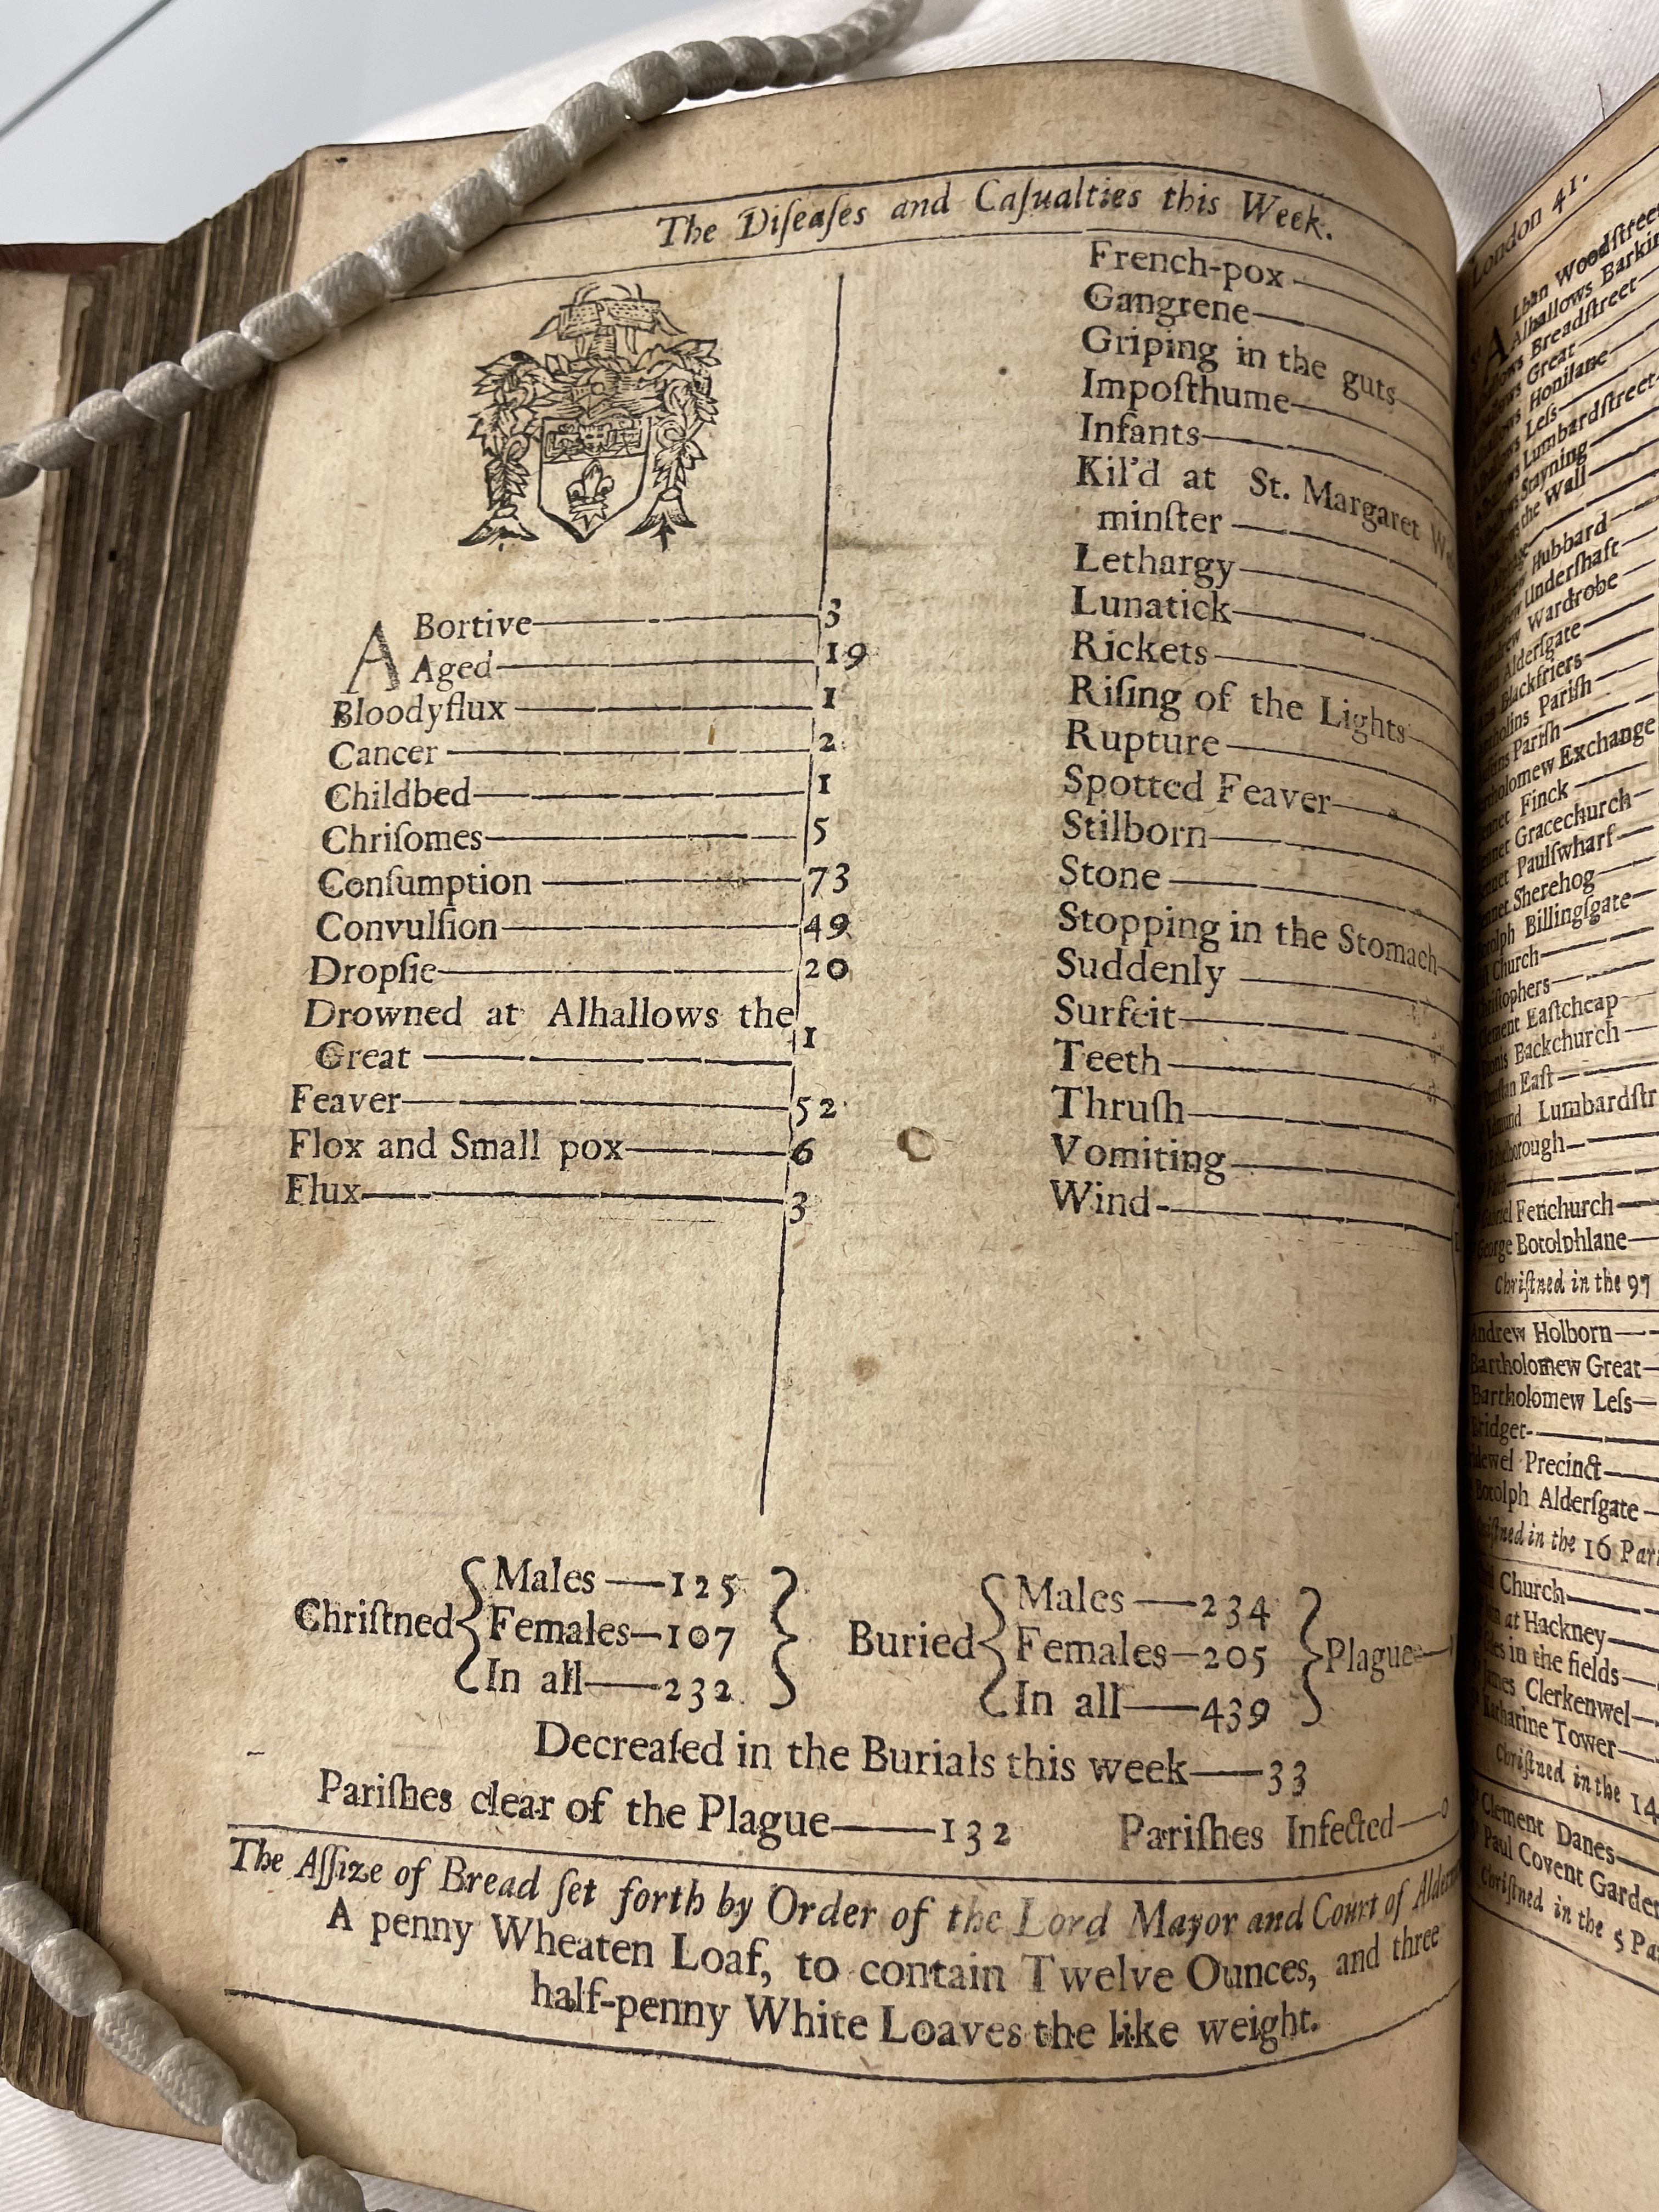 The Diſeaſes and Caſualties this Week.
ABortive 3
Aged 19
Bloodyflux 1
Cancer 2
Childbed 1
Chriſomes 5
Conſumption 73
Convulſion 49
Dropſie 20
Drowned at Alhallows the
Great 1
Feaver 52
Flox and Small pox 6
Flux 3
French-pox
Gangrene
Griping in the guts
Impoſthume
Infants
Kil'd at St. Margaret
minſter
Lethargy
Lunatick
Rickets
Riſing of the Lights
Rupture
Spotted Feaver
Stilborn
Stone
Stopping in the Stomach
Suddenly
Surfeit
Teeth
Thruſh
Vomiting
Wind
Chriſtned
Males 125
Females 107
In all 232
Buried
Males 234
Females 205
In all 439
Plague
Decreaſed in the Burials this week 33
Pariſhes clear of the Plague 132 Pariſhes Infected 0
The Aſſize of Bread ſet forth by Order of the Lord Mayor and Court of
A penny Wheaten Loaf, to contain Twelve Ounces, and three
half-penny White Loaves the like weight.
London 41.
Lban Woodſtreet
Alhallows Barkin
Breadſtreet
Great
Honilane
Leſs
Lumbardſtreet
Stayning
the Wall
Hubbard
Underſhaft
Wardrobe
Alderſgate
Blackfriers
Pariſh
Pariſh
Exchange
Finck
Gracechurch
Paulſwharf
Sherehog
Billingſgate
Church
Eaſtcheap
Backchurch
Eaſt
Lumbardſtr
Fenchurch
George Botolphlane
Chriſtned in the 97
Andrew Holborn
Bartholomew Great
Bartholomew Leſs
Bridget
Precinct
Botolph Alderſgate
in the 16 Pari
Church
at Hackney
in the fields
James Clerkenwel
Katharine Tower
Chriſtned in the 14
Clement Danes
Paul Covent Garden
Chriſtned in the 5 Pa